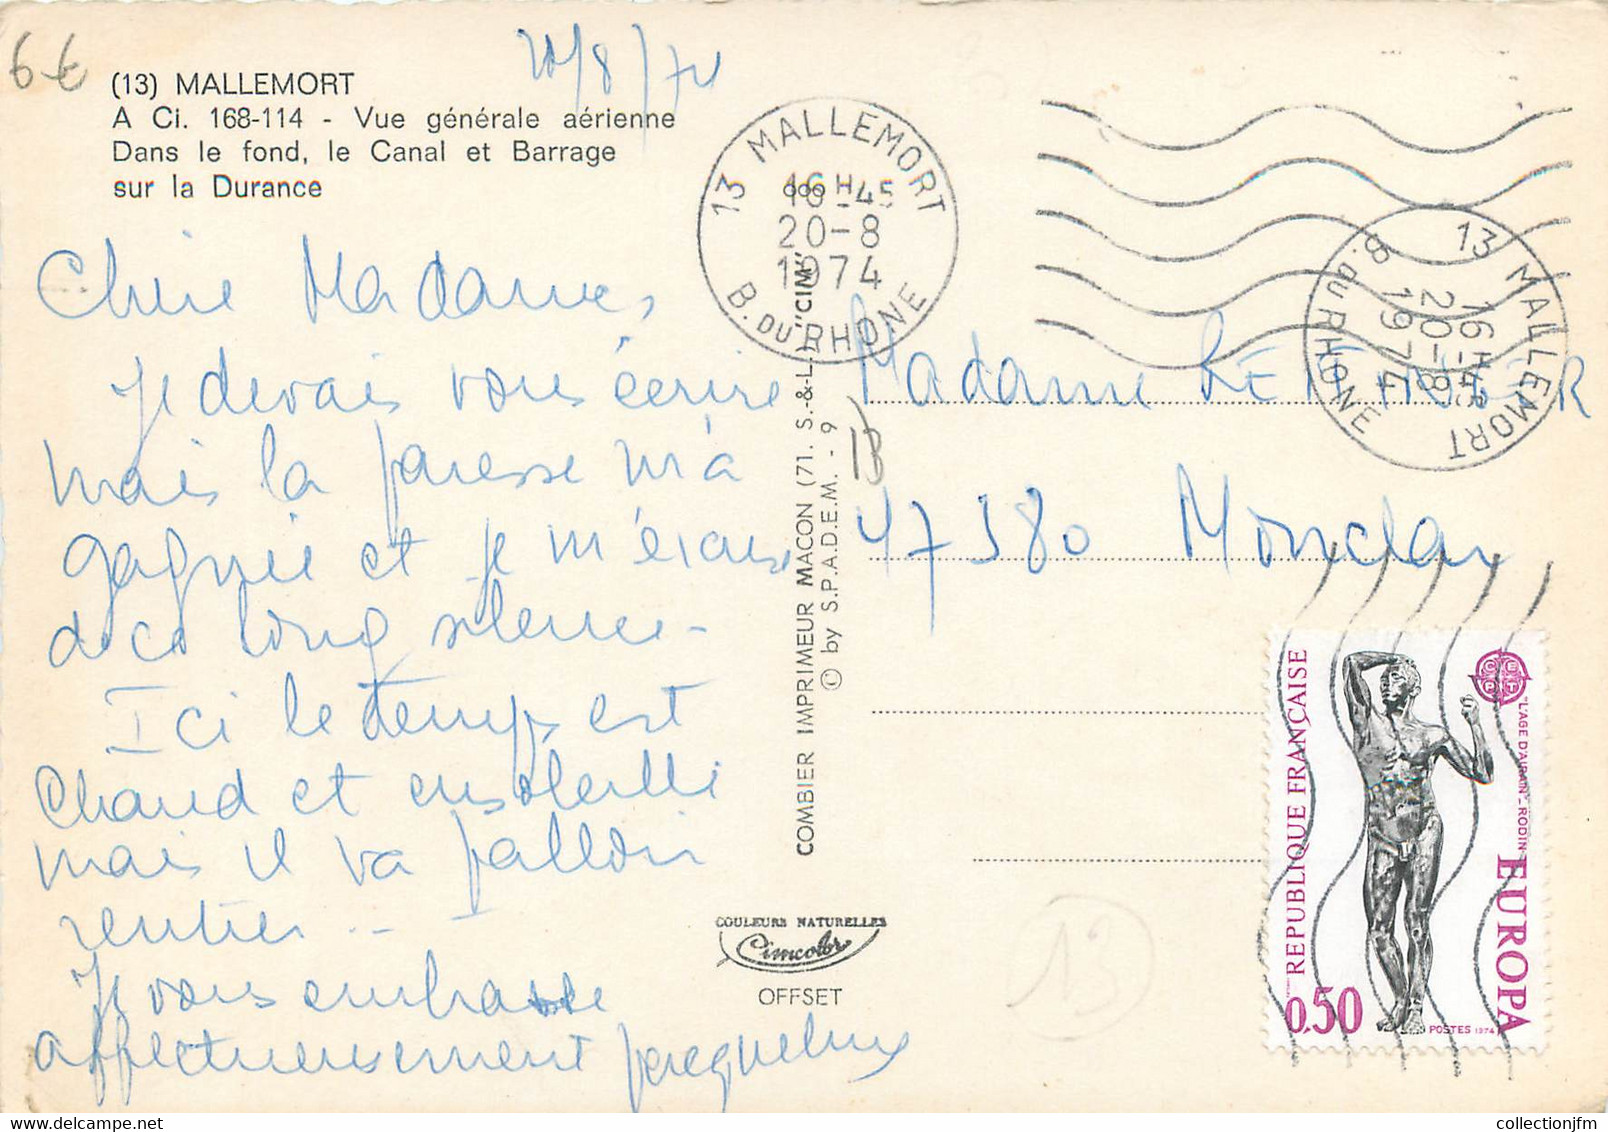 6€
20/8/74
(13) MALLEMORT
A Ci. 168-114 - Vue générale aérienne
Dans le fond, le Canal et Barrage
sur la Durance
Chère Madame,
Je devais vous écrire
mais la paresse m'a
gagnée et je m'excuse
de ce long silence -
Ici le temps est
chaud et ensoleillé
mais il va falloir
rentrer ..
Je vous embrasse
affectueusement Jacqueline
13 MALLEMORT
16H-45
20-8
1974
B. DU RHONE
13 MALLEMORT
16H45
20-8
1974
B. DU RHONE
COMBIER IMPRIMEUR MACON (71. S.-&-L.) "CIM"
© by S.P.A.D.E.M. - 9
13
Madame
47380 Monclar
COULEURS NATURELLES
Cimcolor
OFFSET
13
REPUBLIQUE FRANÇAISE
0,50
CEPT
"L'AGE D'AIRAIN" - RODIN
EUROPA
POSTES 1974
collectionjfm